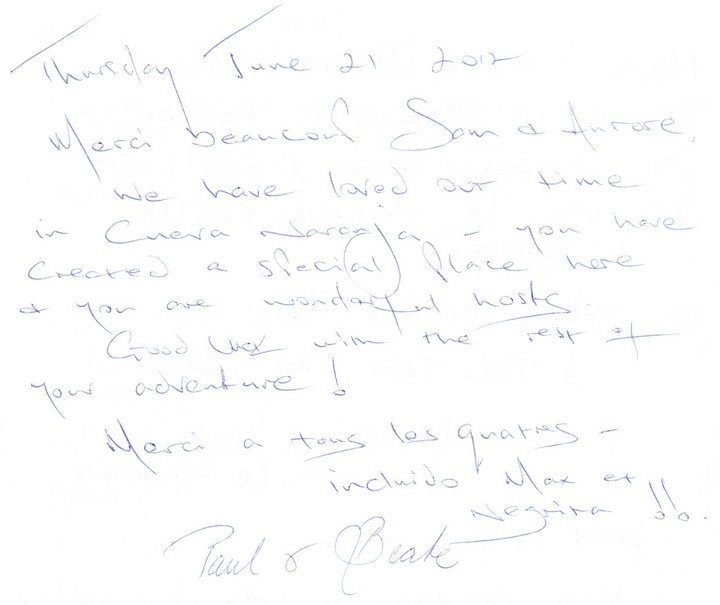 Thursday June 21 2012
Merci beaucoup Sam & Aurore,
We have loved our time
in Cueva Naranja - you have
created a special place here
& you are wonderful hosts.
Good luck with the rest of
your adventure!
Merci a tous les quatres -
incluido Max et
Negrita !!
Paul & Beate